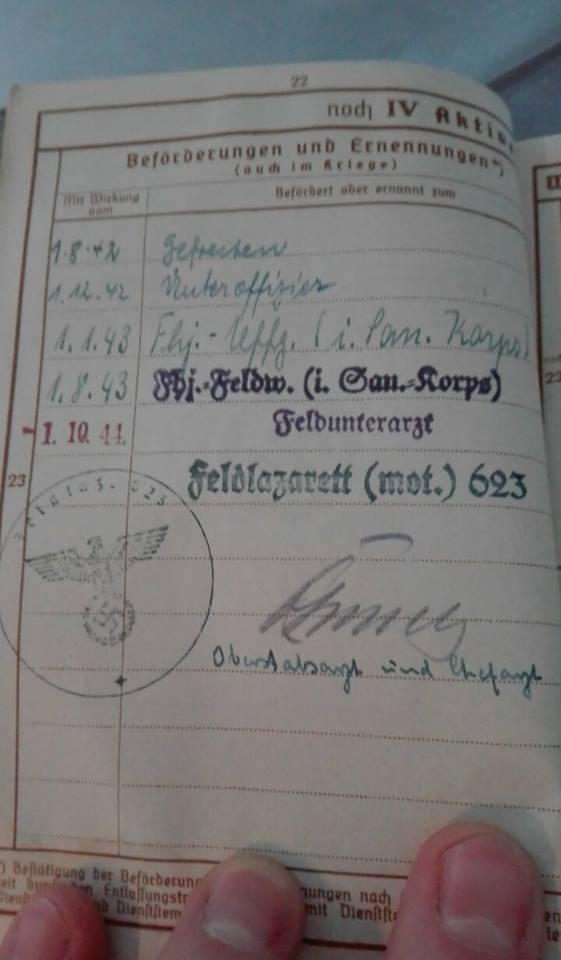 22
noch IV Aktiv
Beförderungen und Ernennungen*)
(auch im Kriege)
Mit Wirkung vom
Befördert oder ernannt zum
1.8.42 Gefreiten
1.12.42 Unteroffizier
1.1.43 Fhj.-Uffz. (i. San. Korps)
1.8.43 Fhj.-Feldw. (i. San.-Korps)
1.10.44 Feldunterarzt
23
Feldlazarett (mot.) 623
Oberstabsarzt und Chefarzt
*) Bestätigung der Beförderung
nungen nach
Entlassungst
Dienst
mit Dienstst
Dienststem
23